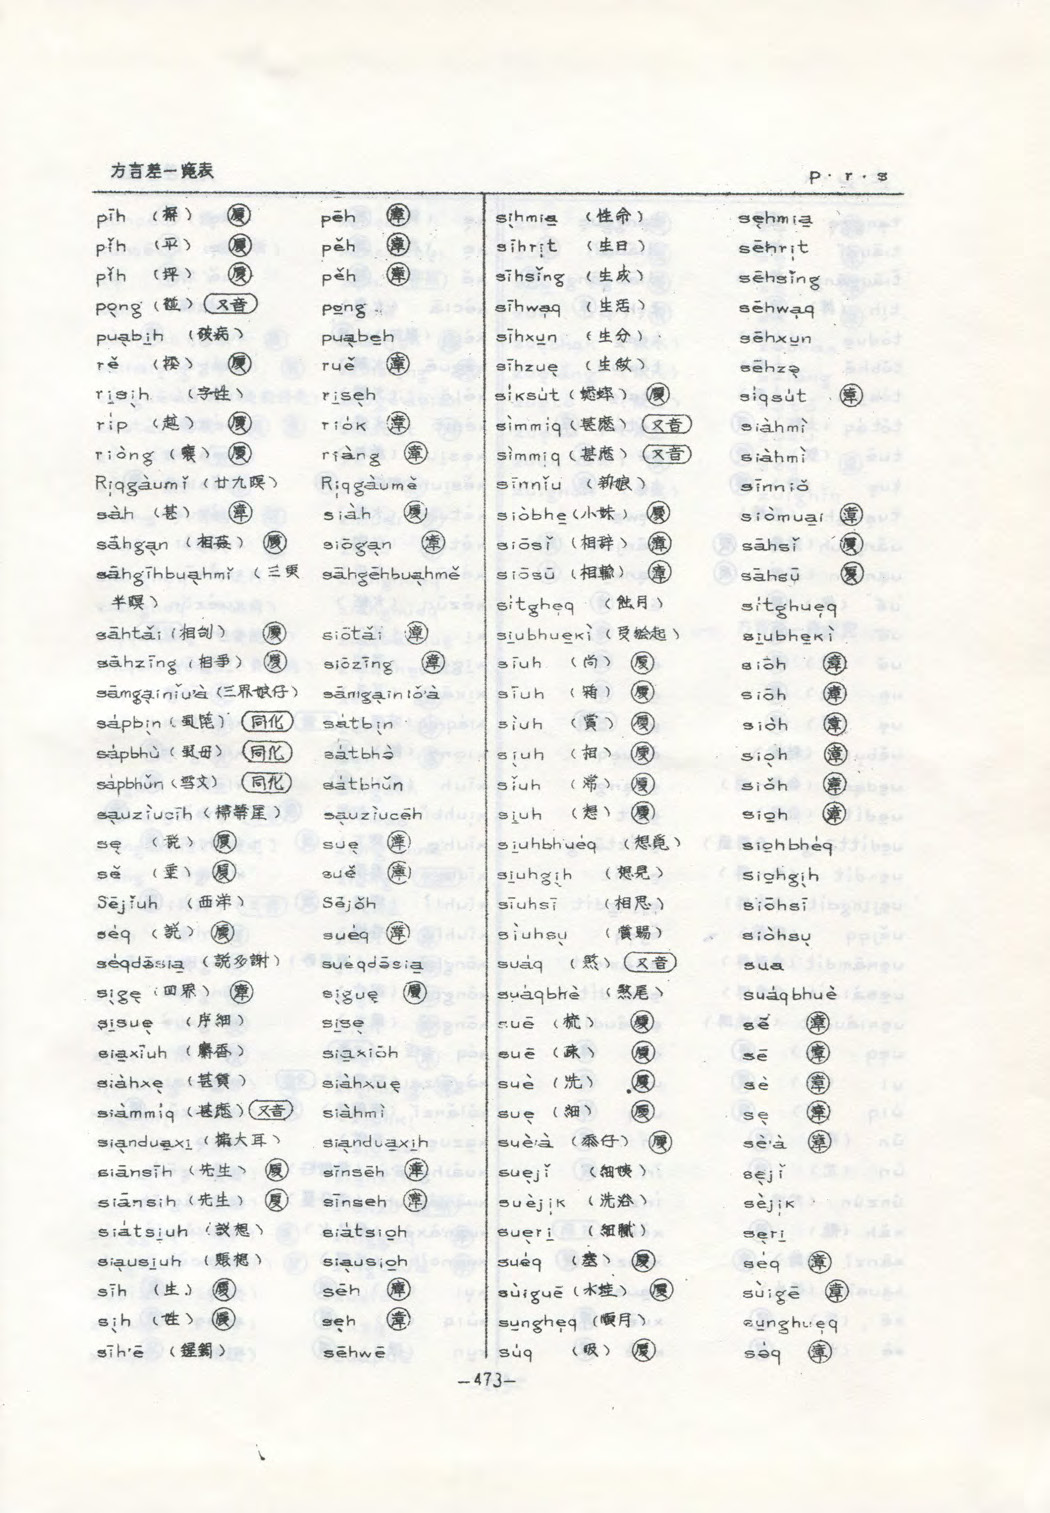 方言差一覧表
p · r · s
pīh (摒) 厦 pēh 漳
pǐh (平) 厦 pěh 漳
pǐh (坪) 厦 pěh 漳
pong 又音 pong
puạbịh (破病) puạbẹh
rě (捼) 厦 ruě 漳
rịsịh (字姓) rịsẹh
ríp (越) 厦 riók 漳
riòng (壤) 厦 riàng 漳
Rịqgàumǐ (廿九暝) Rịqgàumě
sàh (甚) 漳 siàh 厦
sāhgạn (相姦) 厦 siōgạn 漳
sāhgīhbuạhmǐ (三更 sāhgēhbuạhmě
半暝)
sāhtǎi (相刣) 厦 siōtǎi 漳
sāhzīng (相爭) 厦 siōzīng 漳
sāmgạinǐu'à (三界娘仔) sāmgạiniǒ'à
sápbịn 同化 sátbịn
sápbhù (虱母) 同化 sátbhò
sápbhǔn (雪文) 同化 sátbhǔn
sạuzìucīh (掃箒) sạuzìucēh
sẹ (説) 厦 suẹ 漳
sě (垂) 厦 suě 漳
Sējǐuh (西洋) Sējǒh
séq (説) 厦 suéq 漳
séqdāsiạ (説多謝) suéqdāsiạ
sịgẹ (四界) 漳 sịguẹ 厦
sịsuẹ (序細) sịsẹ
siạxīuh (麝香) siạxiōh
siàhxẹ (甚貨) siàhxuẹ
siàmmíq 又音 siàhmì
siạnduạxị (搧大耳) siạnduạxịh
siānsīh (先生) 厦 sīnsēh 漳
siānsih (先生) 厦 sīnseh 漳
siátsịuh (設想) siátsiọh
siạusịuh (賬想) siạusiọh
sīh (生) 厦 sēh 漳
sịh (姓) 厦 sẹh 漳
sīh'ē sēhwē
sịhmiạ (性命) sẹhmiạ
sīhrịt (生日) sēhrịt
sīhsǐng (生成) sēhsǐng
sīhwạq (生活) sēhwạq
sīhxụn (生分) sēhxụn
sīhzuẹ sēhzẹ
síksút (蟋蟀) 厦 síqsút 漳
sìmmiq 又音 siàhmì
sìmmiq 又音 siàhmì
sīnnǐu (新娘) sīnniǒ
siòbhẹ (小妹) 厦 siòmuại 漳
siōsǐ (相辭) 漳 sāhsǐ 厦
siōsū (相輸) 漳 sāhsū 厦
sítghẹq (蝕月) sítghuẹq
sịubhuẹkì sịubhẹkì
sīuh (尚) 厦 siōh 漳
sīuh (箱) 厦 siōh 漳
sìuh (賞) 厦 siòh 漳
sịuh (相) 厦 siọh 漳
sǐuh (常) 厦 siǒh 漳
sịuh (想) 厦 siọh 漳
sịuhbhuéq siọhbhéq
sịuhgịh (想見) siọhgịh
sīuhsī (相思) siōhsī
sìuhsụ (賞賜) siòhsụ
suáq (煞) 又音 sua
suáqbhè (煞尾) suáqbhuè
suē (梳) 厦 sē 漳
suē (疎) 厦 sē 漳
suè (洗) 厦 sè 漳
suẹ (細) 厦 sẹ 漳
suè'à 厦 sè'à 漳
suẹjǐ (細姨) sẹjǐ
suèjịk (洗浴) sèjịk
suẹrị (細膩) sẹrị
suéq (塞) 厦 séq 漳
sùiguē (水蛙) 厦 sùigē 漳
sụnghẹq (順月) sụnghuẹq
súq (吸) 厦 sóq 漳
—473—